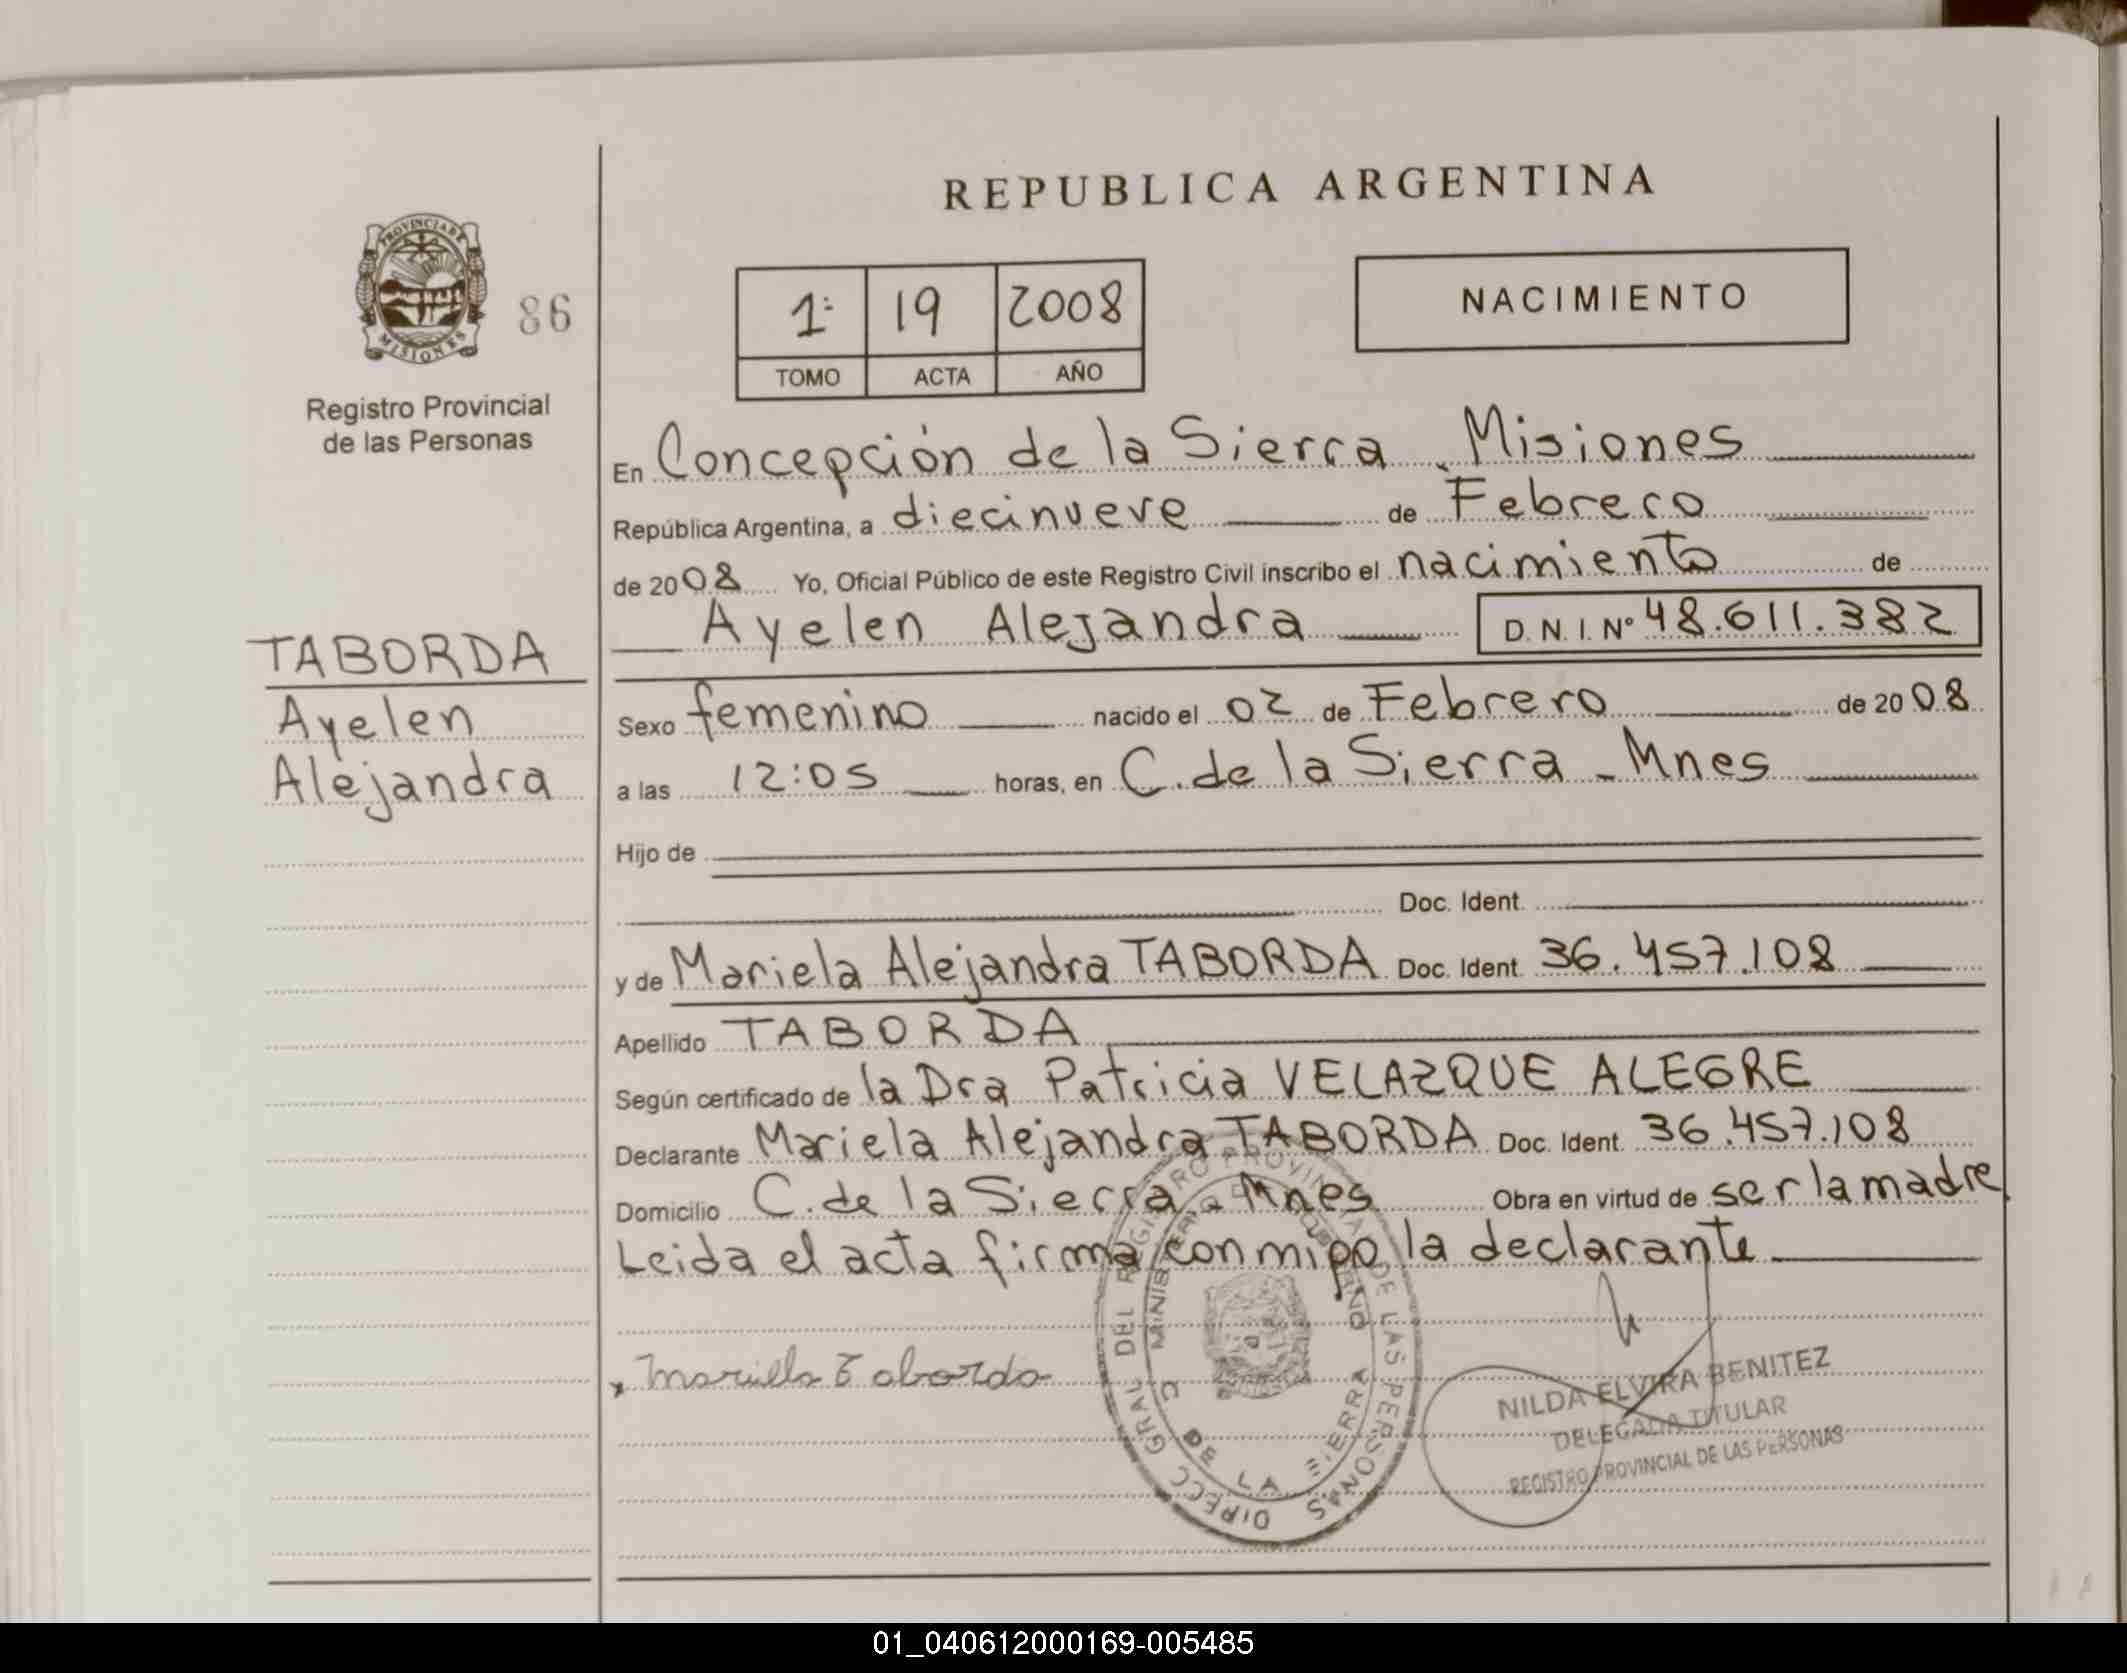 REPUBLICA ARGENTINA
PROVINCIA DE
MISIONES
86
Registro Provincial
de las Personas
1ª 19 2008
TOMO ACTA AÑO
NACIMIENTO
En Concepción de la Sierra. Misiones
República Argentina, a diecinueve de Febrero
de 2008 Yo, Oficial Público de este Registro Civil inscribo el nacimiento de
Ayelen Alejandra D.N.I. Nº 48.611.382
TABORDA
Ayelen
Alejandra
Sexo femenino nacido el 02 de Febrero de 2008
a las 12:05 horas, en C. de la Sierra - Mnes
Hijo de
Doc. Ident.
y de Mariela Alejandra TABORDA Doc. Ident. 36.457.108
Apellido TABORDA
Según certificado de la Dra Patricia VELAZQUE ALEGRE
Declarante Mariela Alejandra TABORDA Doc. Ident. 36.457.108
Domicilio C. de la Sierra. Mnes Obra en virtud de ser la madre
Leida el acta firma conmigo la declarante
x Mariella Taborda
DIRECC GRAL DEL REGISTRO PROVINCIAL DE LAS PERSONAS
MINISTERIO DE GOBIERNO
C DE LA SIERRA
NILDA ELVIRA BENITEZ
DELEGADA TITULAR
REGISTRO PROVINCIAL DE LAS PERSONAS
01_040612000169-005485